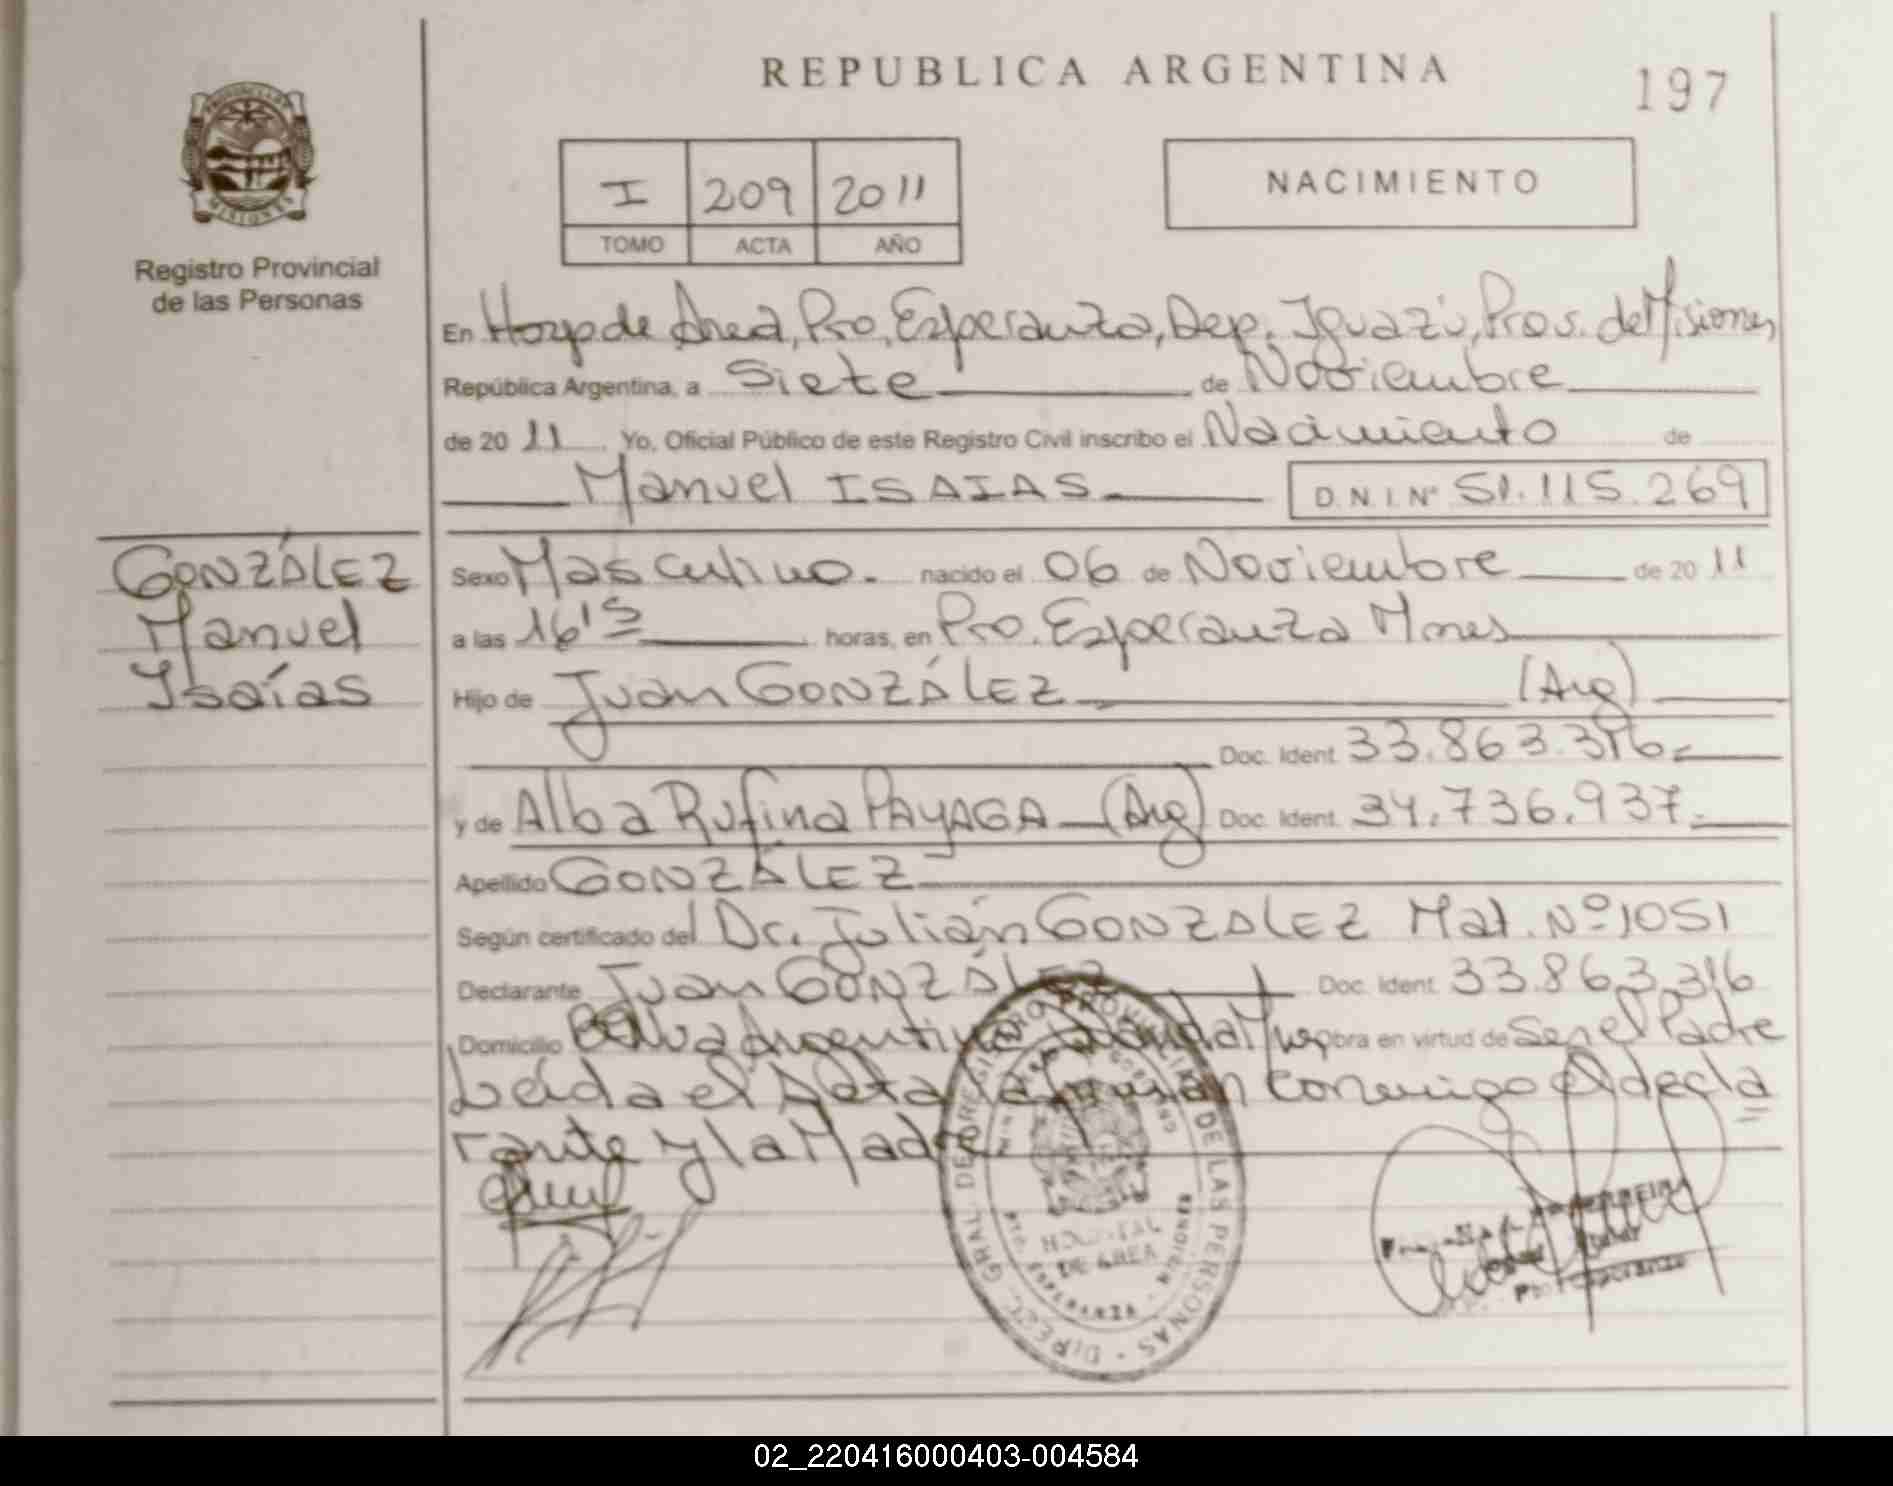 REPUBLICA ARGENTINA
197
MISIONES
Registro Provincial
de las Personas
I 209 2011
TOMO ACTA AÑO
NACIMIENTO
En Hosp de Area, Pto. Esperanza, Dep. Iguazú, Prov. de Misiones
República Argentina, a Siete de Noviembre
de 20 11 Yo, Oficial Público de este Registro Civil inscribo el Nacimiento de
Manuel ISAIAS D.N.I. Nº 51.115.269
GONZÁLEZ
Manuel
Isaías
Sexo Masculino. nacido el 06 de Noviembre de 20 11
a las 16'15 horas, en Pto. Esperanza Mnes
Hijo de Juan GONZÁLEZ (Arg)
Doc. Ident. 33.863.316
y de Alba Rufina PAYAGA (Arg) Doc. Ident. 34.736.937
Apellido GONZÁLEZ
Según certificado del Dr. Julián GONZALEZ Mat. Nº 1051
Declarante Juan GONZÁLEZ Doc. Ident. 33.863.316
Domicilio Argentina Obra en virtud de Ser el Padre
Leída el Acta la firman conmigo el decla
rante y la Madre.
DIRECC. GRAL. DEL REGISTRO PROVINCIAL DE LAS PERSONAS
HOSPITAL
DE AREA
PTO. ESPERANZA - MISIONES
Pto. Esperanza
02_220416000403-004584